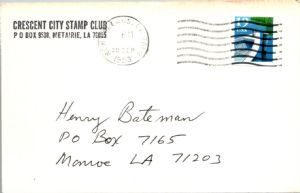 CRESCENT CITY STAMP CLUB
P O BOX 9538, METAIRIE, LA 70055
1993
Henry Bateman
PO Box 7165
Monroe LA 71203